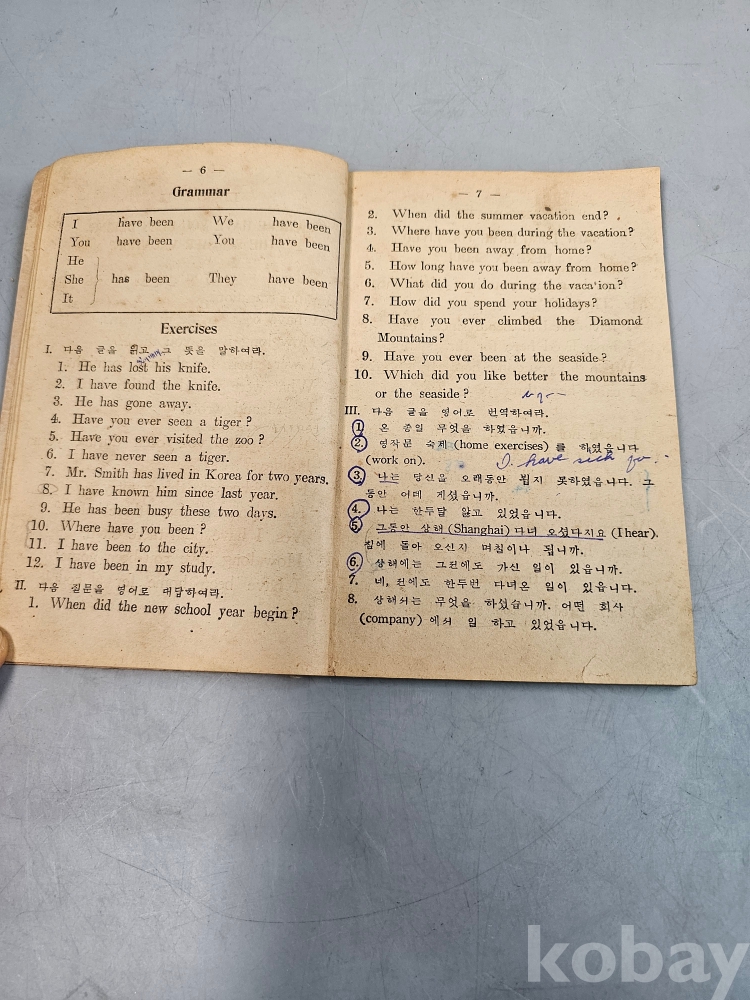 — 6 —
Grammar
I have been We have been
You have been You have been
He
She has been They have been
It
Exercises
I. 다음 글을 읽고 그 뜻을 말하여라.
1. He has lost his knife.
2. I have found the knife.
3. He has gone away.
4. Have you ever seen a tiger?
5. Have you ever visited the zoo?
6. I have never seen a tiger.
7. Mr. Smith has lived in Korea for two years.
8. I have known him since last year.
9. He has been busy these two days.
10. Where have you been?
11. I have been to the city.
12. I have been in my study.
II. 다음 질문을 영어로 대답하여라.
1. When did the new school year begin?
— 7 —
2. When did the summer vacation end?
3. Where have you been during the vacation?
4. Have you been away from home?
5. How long have you been away from home?
6. What did you do during the vaca'ion?
7. How did you spend your holidays?
8. Have you ever climbed the Diamond
Mountains?
9. Have you ever been at the seaside?
10. Which did you like better the mountains
or the seaside?
III. 다음 글을 영어로 번역하여라.
1. 온 종일 무엇을 하였읍니까.
2. 영작문 숙제 (home exercises) 를 하였읍니다
(work on). I have sick fo
3. 나는 당신을 오래동안 뵙지 못하였읍니다. 그
동안 어데 게셨읍니까.
4. 나는 한두달 앓고 있었읍니다.
5. 그동안 상해 (Shanghai) 다녀 오셨다지요 (I hear).
집에 돌아 오신지 며칠이나 됩니까.
6. 상해에는 그전에도 가신 일이 있읍니까.
7. 네, 전에도 한두번 다녀온 일이 있읍니다.
8. 상해서는 무엇을 하셨습니까. 어떤 회사
(company) 에서 일 하고 있었읍니다.
kobay